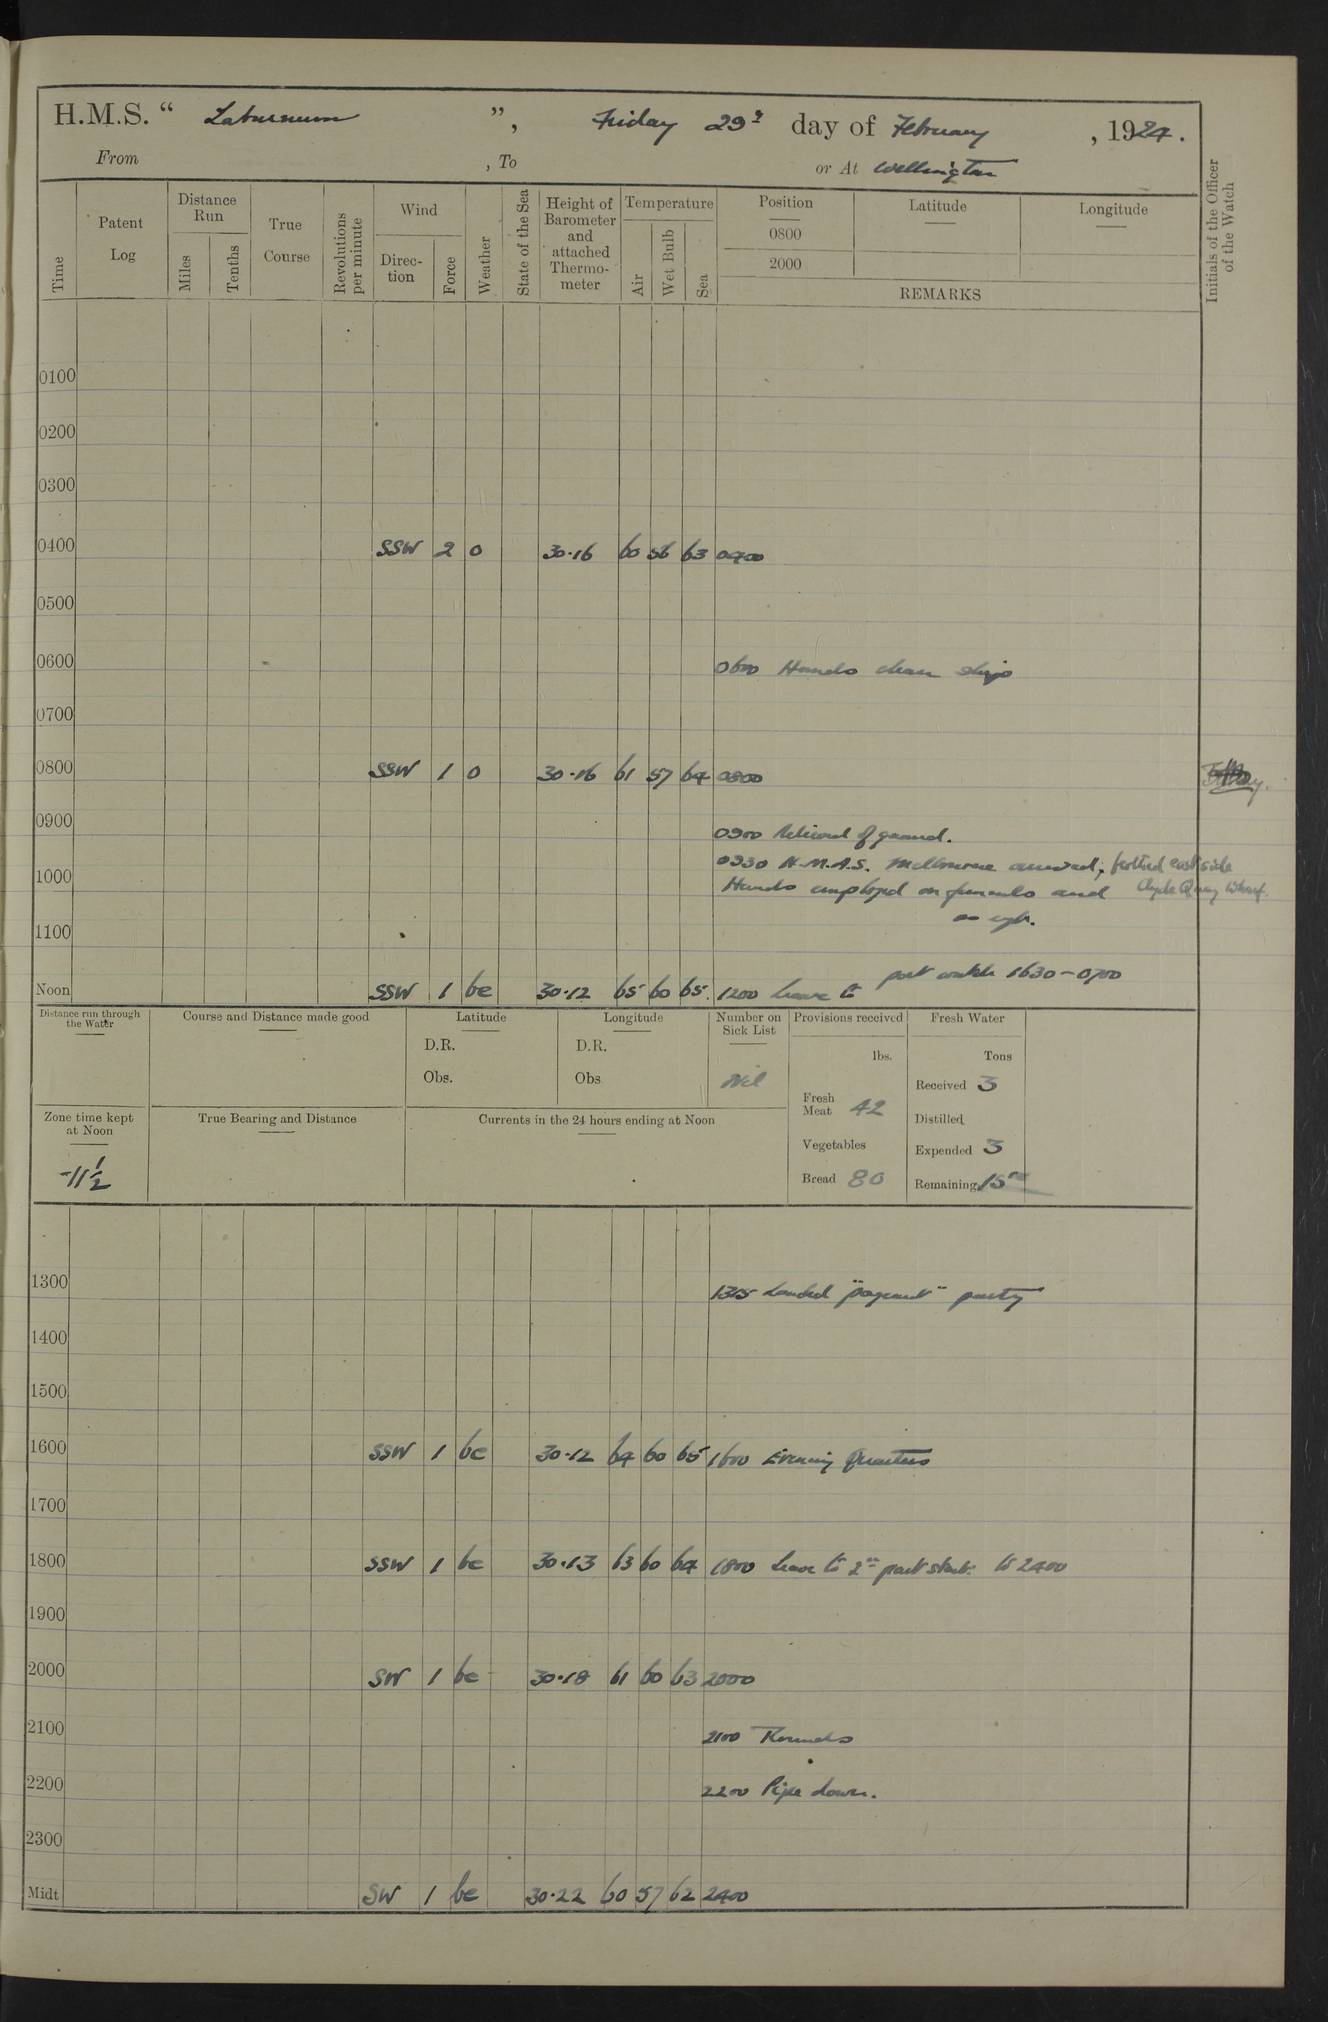 H.M.S. “ Laburnum ”, Friday 29th day of February, 1924.
From , To or At Wellington
Time
Patent Log
Distance Run
Miles
Tenths
True Course
Revolutions per minute
Wind
Direc-tion
Force
Weather
State of the Sea
Height of Barometer and attached Thermo-meter
Temperature
Air
Wet Bulb
Sea
Position Latitude Longitude
0800
2000
REMARKS
Initials of the Officer of the Watch
0100
0200
0300
0400 SSW 2 o 30.16 60 56 63 0400
0500
0600 0600 Hands clean ship
0700
0800 SSW 1 o 30.16 61 57 64 0800
0900 0900 Relieved of guard.
0930 H.M.A.S. Melbourne arrived, berthed east side
Clyde Quay Wharf.
1000 Hands employed on funnels and
as req.
1100
Noon SSW 1 bc 30.12 65 60 65. 1200 Leave to port watch 1630-0700
Distance run through the Water
Course and Distance made good
Latitude
D.R.
Obs.
Longitude
D.R.
Obs
Number on Sick List
Nil
Provisions received
lbs.
Fresh Meat 42
Vegetables
Bread 80
Fresh Water
Tons
Received 3
Distilled
Expended 3
Remaining 15
Zone time kept at Noon
-11½
True Bearing and Distance
Currents in the 24 hours ending at Noon
1300 1315 Landed "pageant" party
1400
1500
1600 SSW 1 bc 30.12 64 60 65 1600 Evening Quarters
1700
1800 SSW 1 bc 30.13 63 60 64 1800 Leave to 2nd part starb: to 2400
1900
2000 SW 1 bc 30.18 61 60 63 2000
2100 2100 Rounds
2200 2200 Pipe down.
2300
Midt SW 1 bc 30.22 60 57 62 2400